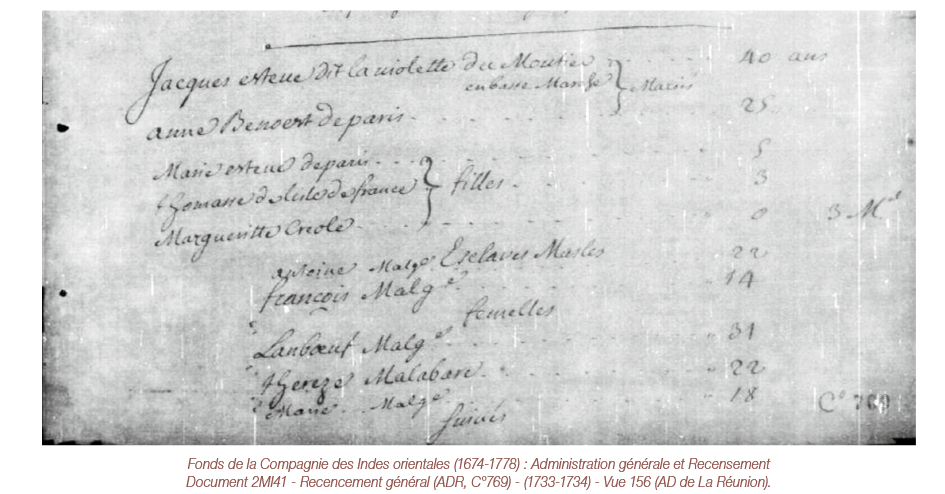 Jacques esteue dit la violette du Moutier 40 ans
en basse Marche Mariés
anne Benoert de paris 25
Marie esteue de paris 5
thomasse de lisle de france filles 3
Margueritte Creole 0 3 M
antoine Malge Esclaves Masles 22
françois Malge 14
femelles
Lanbœuf Malge 31
thereze Malabare 22
Marie Malge 18
suivés
C° 769
Fonds de la Compagnie des Indes orientales (1674-1778) : Administration générale et Recensement
Document 2MI41 - Recencement général (ADR, C°769) - (1733-1734) - Vue 156 (AD de La Réunion).